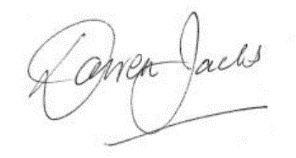 Darren Jacks